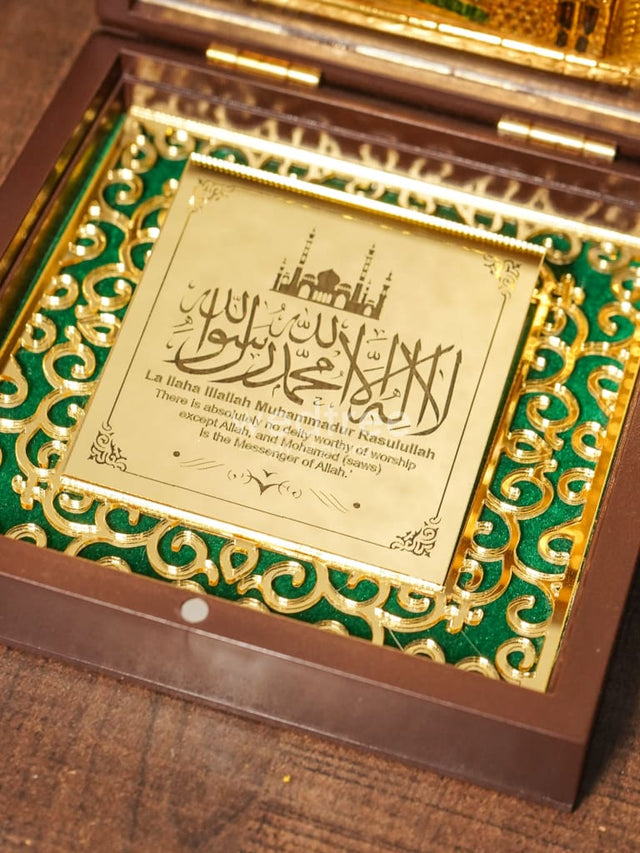 لا إله إلا الله محمد رسول الله
La Ilaha Illallah Muhammadur Rasulullah
There is absolutely no deity worthy of worship
except Allah, and Mohamed (saws)
Is the Messenger of Allah.'